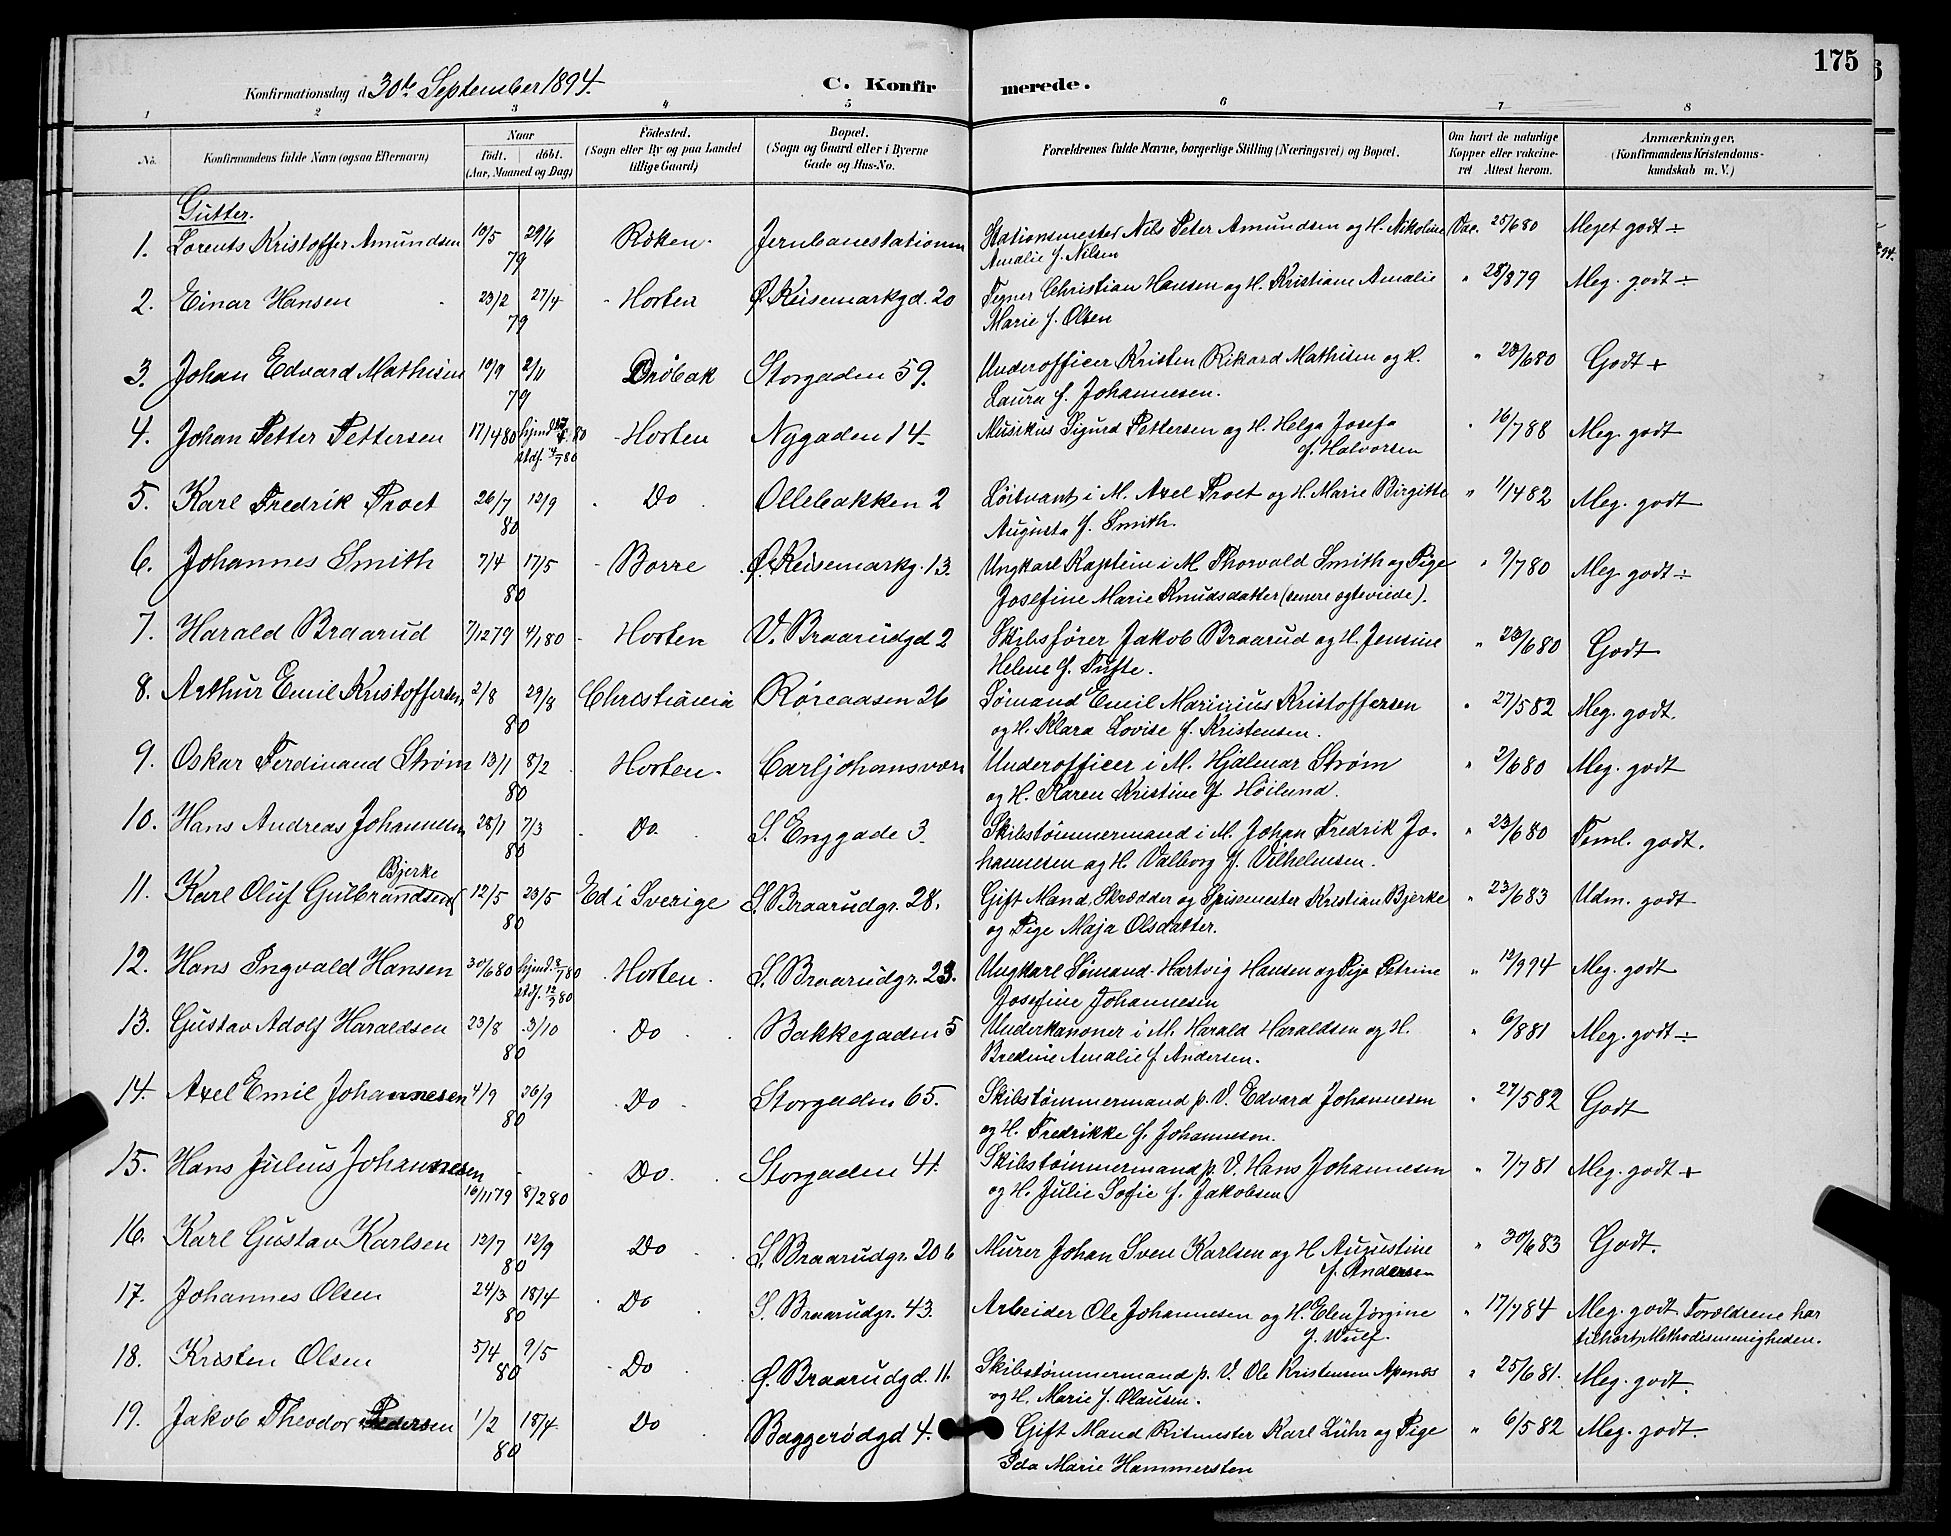 175
Konfirmationsdag d. 30te September 1894.
C. Konfirmerede.
1 2 3 4 5 6 7 8
No. Konfirmandens fulde Navn (ogsaa Efternavn) Naar født. døbt. (Aar, Maaned og Dag) Fødested. (Sogn eller By og paa Landet tillige Gaard) Bopæl. (Sogn og Gaard eller i Byerne Gade og Hus-No. Forældrenes fulde Navne, borgerlige Stilling (Næringsvei) og Bopæl. Om havt de naturlige Kopper eller vakcineret Attest herom. Anmærkninger, (Konfirmandens Kristendomskundskab m. V.)
Gutter.
1. Lorents Kristoffer Amundsen 10/5 29/6 79 Røken. Jernbanestationen Stationsmester Nils Peter Amundsen og H. Nikoline Vac. 25/6 80 Meget godt ÷
Amalie f. Nilsen
2. Einar Hansen 23/2 27/4 79 Horten Ø. Keisemarkgd. 20 Tegner Christian Hansen og H. Kristiane Amalie " 28/8 79 Meg. godt ÷
Marie f. Olsen
3. Johan Edvard Mathisen 10/9 2/11 79 Drøbak Storgaden 59. Underofficer Kristen Rikard Mathisen og H. " 28/6 80 Godt +
Laura f. Johannesen.
4. Johan Petter Pettersen 17/4 80 hjmd. 80 stdf. 4/7 80 Horten Nygaden 14. Musikus Sigurd Pettersen og H. Helga Josefa " 16/7 88 Meg. godt
f. Halvorsen
5. Karl Fredrik Proet 26/7 12/9 80 Do Ollebakken 2 Løitnant i M. Axel Proet og H. Marie Birgitte " 11/4 82 Meg. godt
Augusta f. Smith.
6. Johannes Smith 7/4 17/5 80 Borre Ø. Keisemarkg. 13. Ungkarl Kaptein i M. Thorvald Smith og Pige " 9/7 80 Meg godt ÷
Josefine Marie Knudsdatter (senere egteviede).
7. Harald Braarud 7/12 79 4/1 80 Horten V. Braarudgd 2 Skibsfører Jakob Braarud og H. Jensine " 23/6 80 Godt
Helene f. Tufte.
8. Arthur Emil Kristoffersen 2/8 29/8 80 Christiania Røreaasen 26 Sømand Emil Marinius Kristoffersen " 27/5 82 Meg. godt.
og H. Klara Lovise f. Kristensen.
9. Oskar Ferdinand Strøm 13/1 8/2 80 Horten. Carljohansværn Underofficer i M. Hjalmar Strøm " 2/6 80 Meg. godt
og H. Karen Kristine f Høilund.
10. Hans Andreas Johannesen 28/1 7/3 80 Do. S. Enggade 3. Skibstømmermand i M. Johan Fredrik Jo- " 23/6 80 Teml. godt.
hannesen og H. Valborg f. Vilhelmsen.
Bjerke
11. Karl Oluf Gulbrandsen 12/5 23/5 80 Ed i Sverige S. Braarudgr. 28. Gift Mand Skrædder og Spissemester Kristian Bjerke " 23/6 83 Udm. godt
og Pige Maja Olsdatter.
12. Hans Ingvald Hansen 30/6 80 hjmd. 8/7 80 stdf. 12/9 80 Horten. S. Braarudgr. 23. Ungkarl Sømand Hartvig Hansen og Pige Petrine " 12/9 94 Meg. godt
Josefine Johannesen
13. Gustav Adolf Haraldsen 23/8 3/10 80 Do Bakkegaden 5 Underkanoner i M. Harald Haraldsen og H. " 6/8 81 Meg. godt ÷
Bredine Amalie f Andersen.
14. Axel Emil Johannesen 4/9 26/9 80 Do Storgaden 65. Skibstømmermand p. V. Edvard Johannesen " 27/5 82 Godt
og H. Fredrikke f. Johannesen.
15. Hans Julius Johannesen 16/11 79 8/2 80 Do. Storgaden 41. Skibstømmermand p. V. Hans Johannesen " 7/7 81 Meg. godt +
og H. Julie Sofie f. Jakobsen
16. Karl Gustav Karlsen 12/7 12/9 80 Do S. Braarudgr. 20 b Murer Johan Sven Karlsen og H Augustine " 30/6 83 Godt.
f. Andersen
17. Johannes Olsen 24/3 18/4 80 Do S. Braarudgr. 43. Arbeider Ole Johannesen og H. Elen Jørgine " 17/7 84 Meg. godt. Forældrene har
f. Wulf. tilhørt Methodistmenigheden.
18. Kristen Olsen 5/4 9/5 80 Do Ø. Braarudgd. 11. Skibstømmermand p. V. Ole Kristensen Apenæs " 25/6 81. Meg. godt.
og H. Marie f. Olausen.
19. Jakob Theodor Pedersen 1/2 18/4 80 Do Baggerødgd 4. Gift Mand Ritmester Karl Lühr og Pige " 6/5 82 Meg. godt.
Ida Marie Hammersten